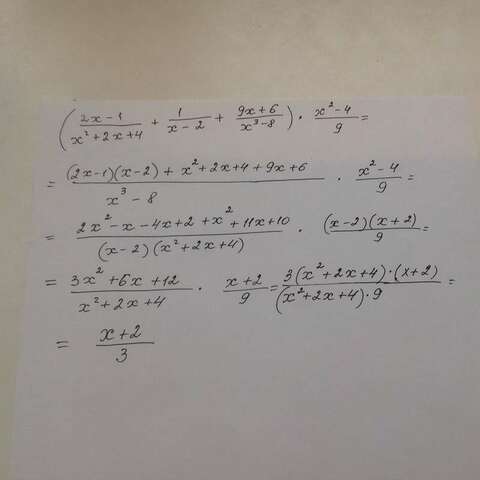 ( (2x-1)/(x²+2x+4) + 1/(x-2) + (9x+6)/(x³-8) ) · (x²-4)/9 =
= ((2x-1)(x-2) + x²+2x+4+9x+6)/(x³-8) · (x²-4)/9 =
= (2x²-x-4x+2+x²+11x+10)/((x-2)(x²+2x+4)) · ((x-2)(x+2))/9 =
= (3x²+6x+12)/(x²+2x+4) · (x+2)/9 = (3(x²+2x+4)·(x+2))/((x²+2x+4)·9) =
= (x+2)/3